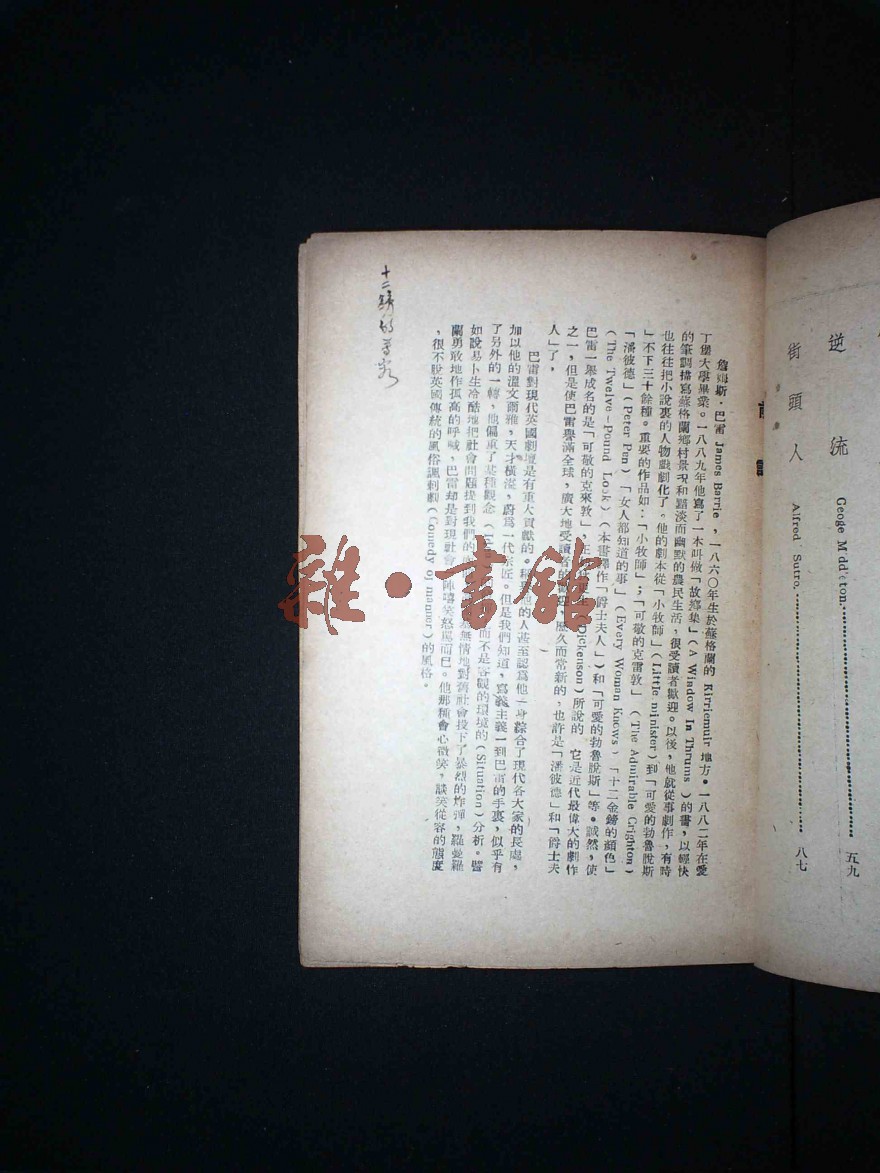 逆流 Geoge M'dd'eton. 五九
街頭人 Alfred Sutro. 八七
前
詹姆斯·巴雷 James Barrie,一八六〇年生於蘇格蘭的 Kirriemuir 地方。一八八二年在愛
丁堡大學畢業。一八八九年他寫了一本叫做「故鄉集」(A Window In Thrums)的書,以輕快
的筆調描寫蘇格蘭鄉村景況和黯淡而幽默的農民生活,很受讀者歡迎。以後,他就從事劇作,有時
也往往把小說裏的人物戲劇化了。他的劇本從「小牧師」(Little minister)到「可愛的勃魯脫斯
」不下三十餘種。重要的作品如:「小牧師」;「可敬的克雷敦」(The Admirable Crighton)
「潘彼德」(Peter Pan)「女人都知道的事」(Every Woman Knows)「十二金鎊的顏色」
(The Twelve-Pound Look)(本書譯作「爵士夫人」)和「可愛的勃魯脫斯」等。誠然,使
巴雷一舉成名的是「可敬的克來敦」,正 Dickenson)所說的 它是近代最偉大的劇作
之一,但是使巴雷譽滿全球,廣大地受讀者的歡迎,歷久而常新的,也許是「潘彼德」和「爵士夫
人」了,
巴雷對現代英國劇壇是有重大貢獻的。稱譽他的人甚至認爲他一身綜合了現代各大家的長處,
加以他的溫文爾雅,天才橫溢,蔚爲一代宗匠。但是我們知道,寫義主義一到巴雷的手裏,似乎有
了另外的一轉,他偏重了某種觀念( 而不是客觀的環境的(Situation)分析。譬
如說易卜生冷酷地把社會問題提到我們的 無情地對舊社會投下了暴烈的炸彈,羅曼羅
蘭勇敢地作孤高的呼喊,巴雷却是對現社會 陣嘻笑怒罵而已。他那種會心微笑,談笑從容的態度
,很不脫英國傳統的風俗諷刺劇(Comedy of manner)的風格。
十二鎊的尊容
雜·書館